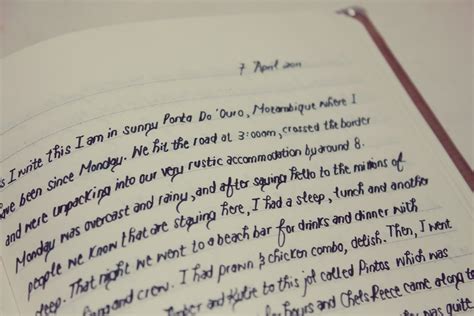 7 April 2011
s I write this I am in sunny Ponta Do 'Ouro, Mozambique where I
've been since Monday. We hit the road at 3:00am, crossed the border
and were unpacking into our very rustic accommodation by around 8.
Monday was overcast and rainy, and after saying hello to the millions of
people we know that are staying here, I had a sleep, lunch and another
sleep. That night we went to a beach bar for drinks and dinner with
and crew. I had prawn & chicken combo, delish. Then, I went
and to this jol called Pintos which was
hours and Chels Reece came along to
was quite